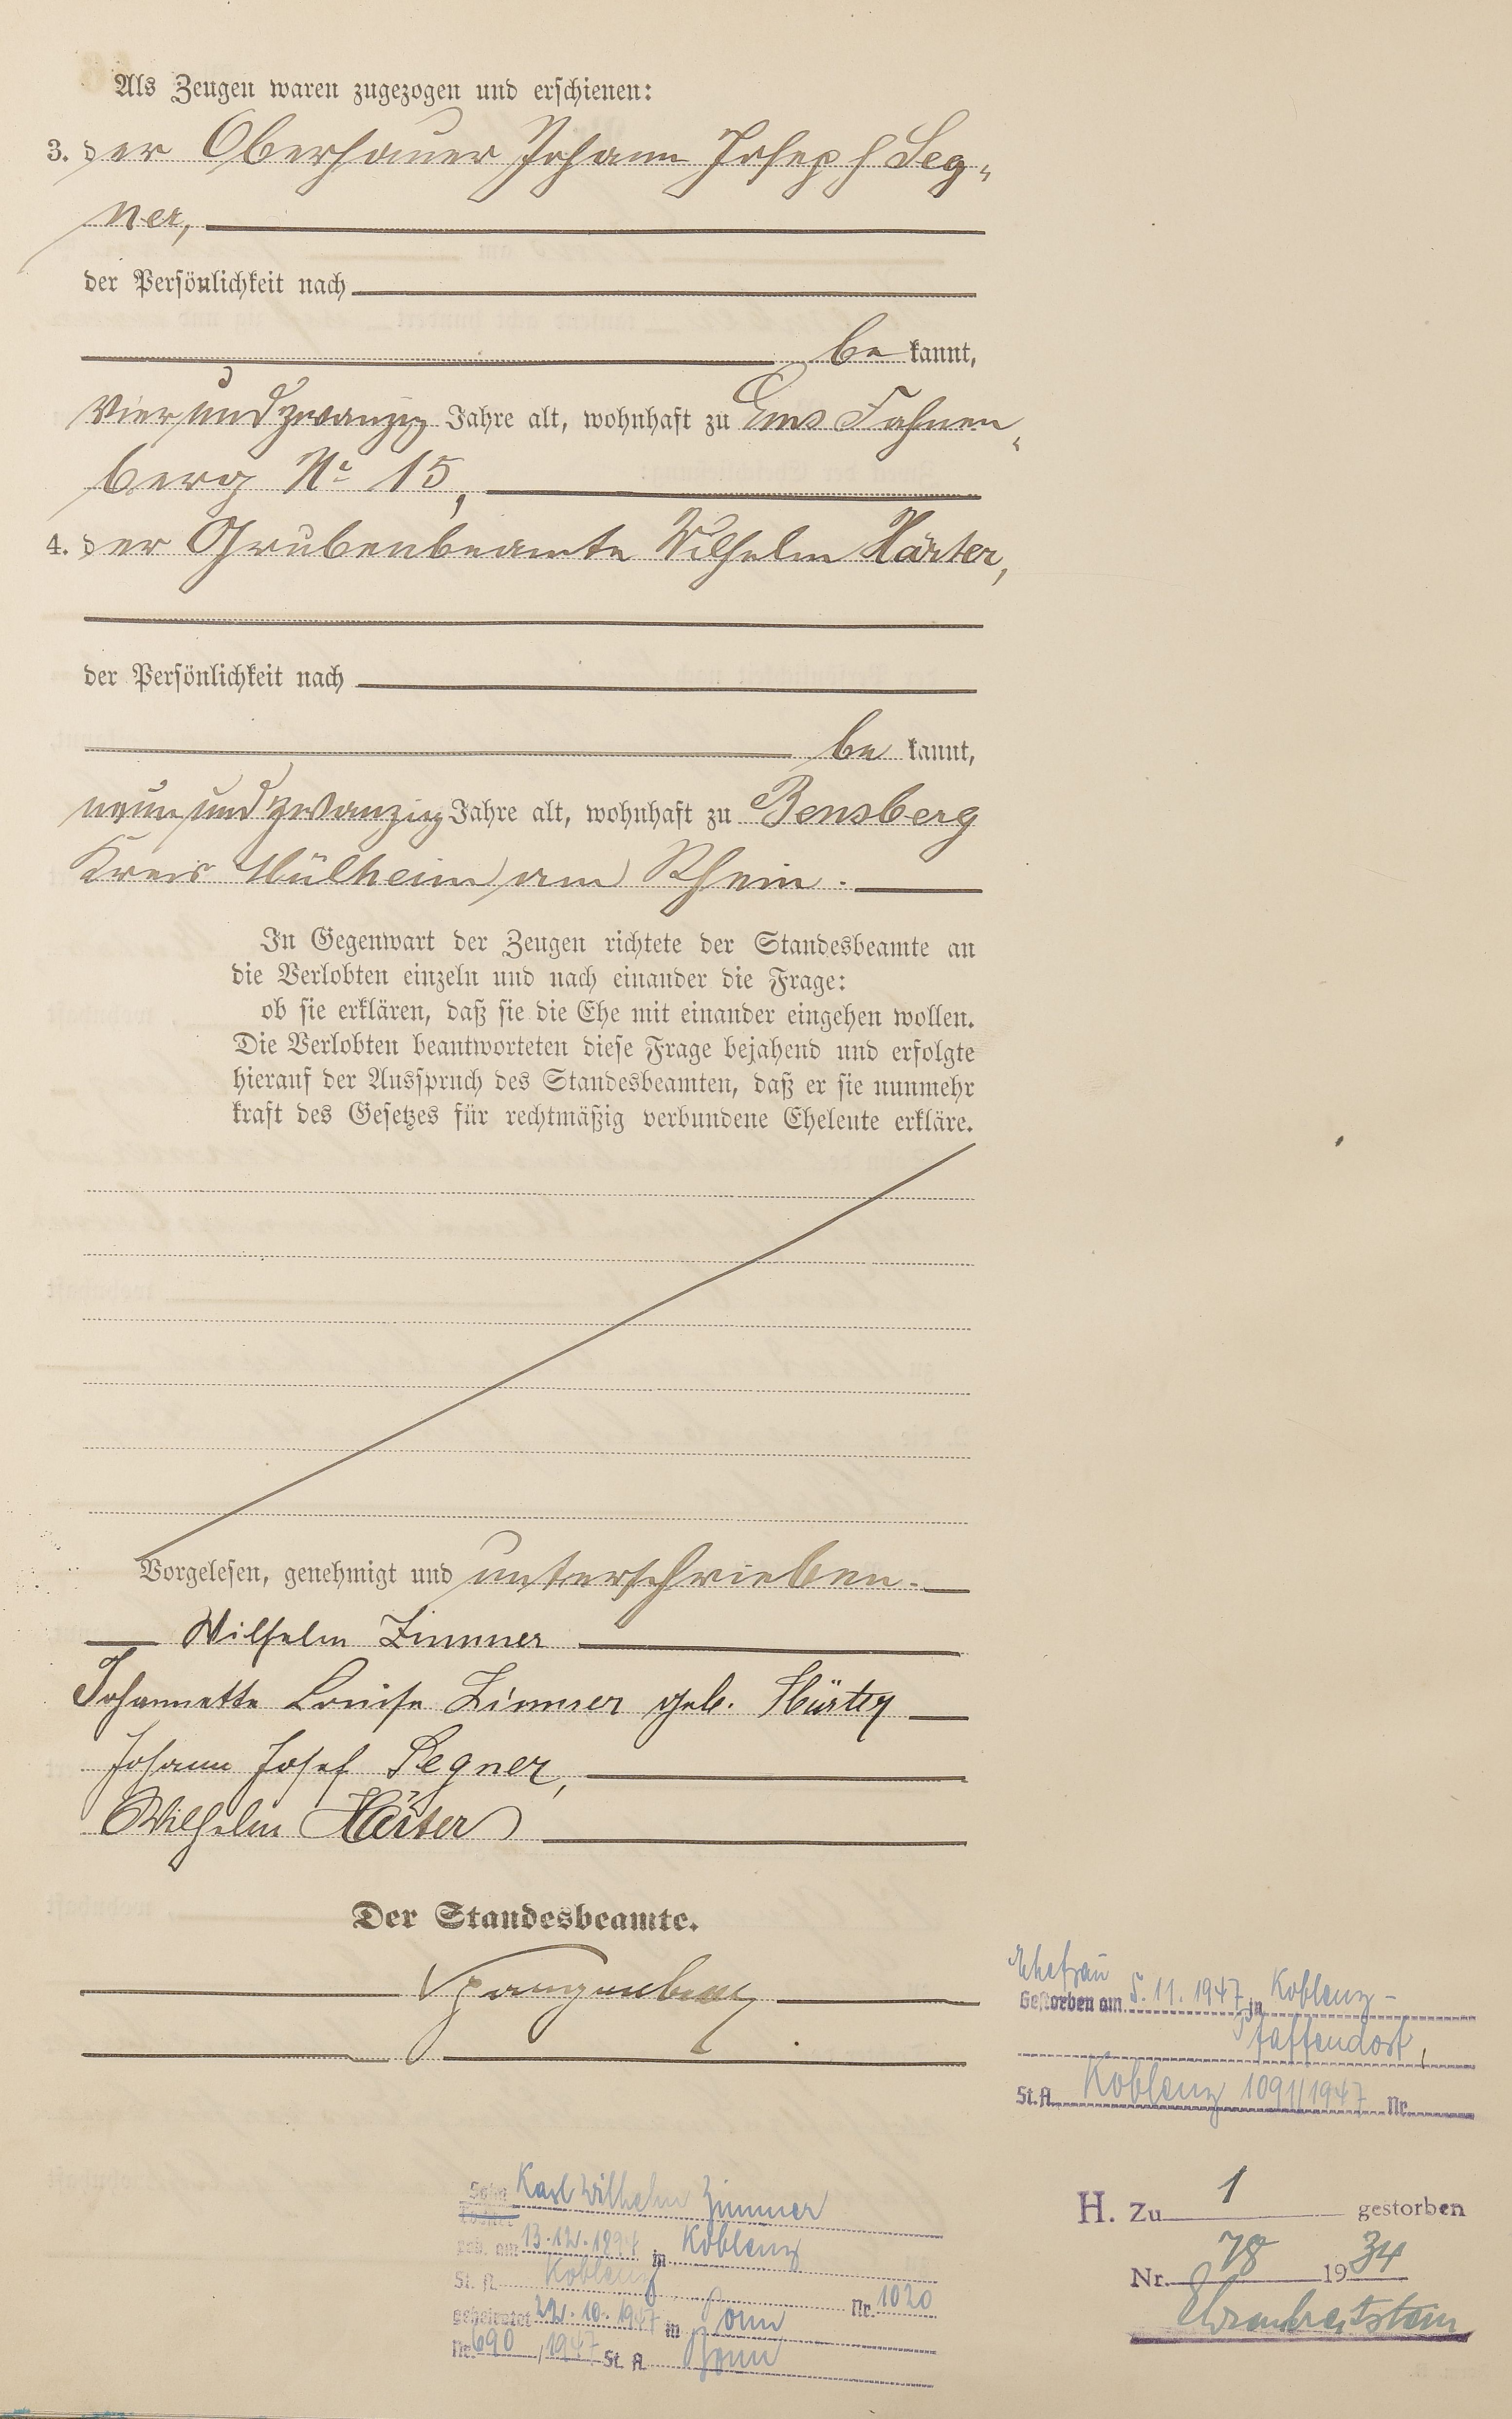 Als Zeugen waren zugezogen und erschienen:
3. der Oberhauer Johann Joseph Seg-
ner,
der Persönlichkeit nach
be kannt,
vierundzwanzig Jahre alt, wohnhaft zu Ems Fahnen-
berg No 15,
4. der Grubenbeamte Wilhelm Härter,
der Persönlichkeit nach
be kannt,
neunundzwanzig Jahre alt, wohnhaft zu Bensberg
Kreis Mülheim am Rhein.
In Gegenwart der Zeugen richtete der Standesbeamte an
die Verlobten einzeln und nach einander die Frage:
ob sie erklären, daß sie die Ehe mit einander eingehen wollen.
Die Verlobten beantworteten diese Frage bejahend und erfolgte
hierauf der Ausspruch des Standesbeamten, daß er sie nunmehr
kraft des Gesetzes für rechtmäßig verbundene Eheleute erkläre.
Vorgelesen, genehmigt und unterschrieben.
Wilhelm Zimmer
Johannette Louise Zimmer geb.
Johann Josef Segner,
Wilhelm Härter
Der Standesbeamte.
Ehefrau
Gestorben am 5.11.1947 in Koblenz-
Pfaffendorf,
St. A. Koblenz 1091/1947 Nr.
Sohn Karl Wilhelm Zimmer
Tochter
geb. am 13.12.1894 in Koblenz
St. A. Koblenz Nr. 1020
geheiratet 22.10.1947 in Bonn
Nr. 690/1947 St. A. Bonn
H. Zu 1 gestorben
Nr. 78 1934
Ehrenbreitstein